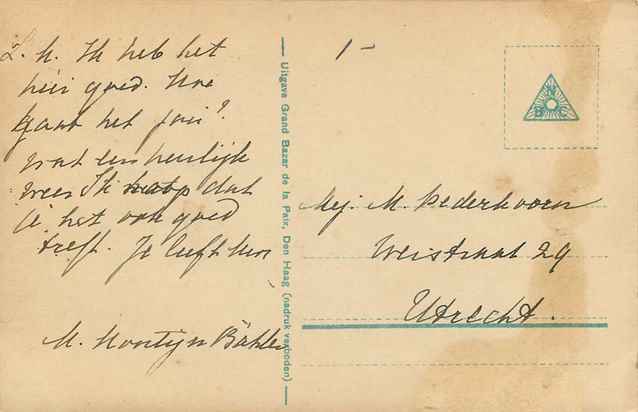 L. M. Ik heb het
hier goed. Hoe
gaat het jou?
wat een heerlijk
weer Ik hoop dat
je het ook goed
treft. Je liefh.
M. Montijn Bähler
Uitgave Grand Bazar de la Paix, Den Haag (nadruk verboden)
1 -
N
B C
Mej. M. Dederhoorn
Weistraat 29
Utrecht.